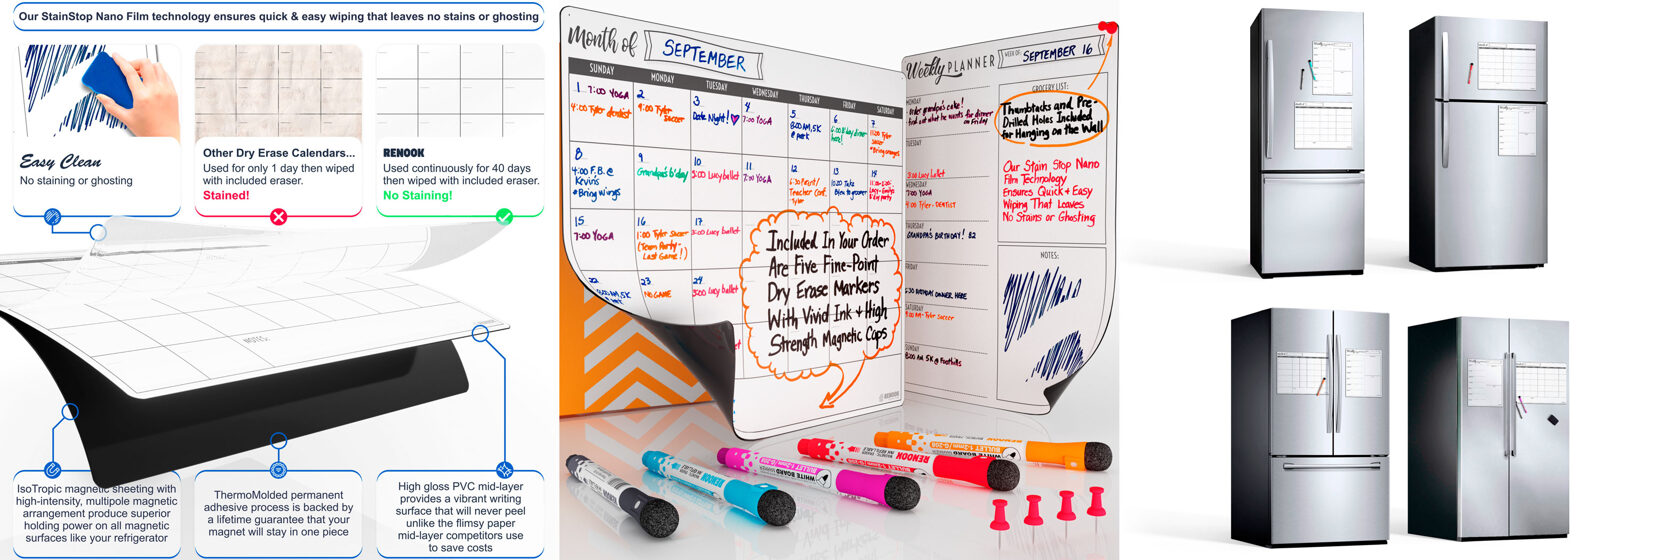 Our StainStop Nano Film technology ensures quick & easy wiping that leaves no stains or ghosting
Easy Clean
No staining or ghosting
Other Dry Erase Calendars...
Used for only 1 day then wiped
with included eraser.
Stained!
RENOOK
Used continuously for 40 days
then wiped with included eraser.
No Staining!
NOTES:
IsoTropic magnetic sheeting with
high-intensity, multipole magnetic
arrangement produce superior
holding power on all magnetic
surfaces like your refrigerator
ThermoMolded permanent
adhesive process is backed by
a lifetime guarantee that your
magnet will stay in one piece
High gloss PVC mid-layer
provides a vibrant writing
surface that will never peel
unlike the flimsy paper
mid-layer competitors use
to save costs
Month of
SEPTEMBER
SUNDAY
MONDAY
TUESDAY
WEDNESDAY
THURSDAY
FRIDAY
SATURDAY
1 7:00 YOGA
4:00 Tyler dentist
2
9:00 Tyler
Soccer
3
Date Night!
4
7:00 YOGA
5
8:00 AM, 5K
@ park
6
7
8
4:00 F.B. @
Kevin's
*Bring Wings
9
Grandpa's b'day
10
5:00 Lucy ballet
11
7:00 YOGA
12
Teacher Conf.
Tyler
13
15
7:00 YOGA
16
1:00 Tyler Soccer
(Team Party-
Last Game!)
17
5:00 Lucy ballet
22
23
NO GAME
24
5:00 Lucy ballet
Included In Your Order
Are Five Fine-Point
Dry Erase Markers
With Vivid Ink + High
Strength Magnetic Caps
RENOOK
Weekly PLANNER
WEEK OF:
SEPTEMBER 16
MONDAY
order grandpa's cake!
find out what he wants for dinner
on Friday
TUESDAY
5:00 Lucy ballet
WEDNESDAY
7:00 YOGA
4:00 Tyler - DENTIST
THURSDAY
GRANDPA'S BIRTHDAY! 82
FRIDAY
6:30 BIRTHDAY DINNER HERE
SATURDAY
9:00 AM - Tyler Soccer
SUNDAY
8:00 AM 5K @ Foothills
GROCERY LIST:
Thumbtacks and Pre-
Drilled Holes Included
for Hanging on the Wall
Our Stain Stop Nano
Film Technology
Ensures Quick + Easy
Wiping That Leaves
No Stains or Ghosting
NOTES:
RENOOK
WHITE BOARD
RENOOK
WHITE BOARD
RENOOK